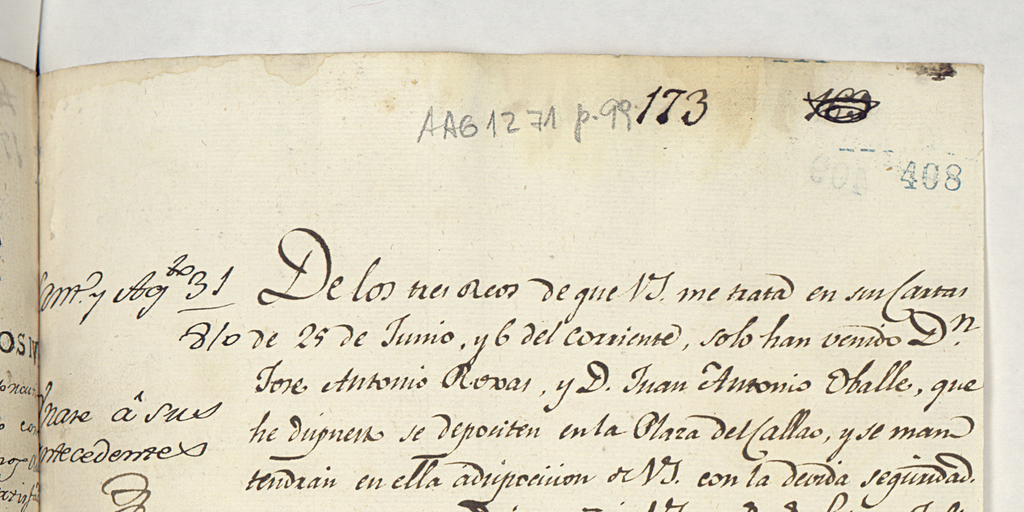 AAG 1271 p. 99. 173
408
y Ag.to 31
810
De los tres Reos de que VS. me trata en sus Cartas
de 25 de Junio, y 6 del corriente, solo han venido D.n
Jose Antonio Roxas, y D. Juan Antonio Oballe, que
he dispuesto se depositen en la Plaza del Callao, y se man
tendran en ella a disposicion de VS. con la devida seguridad.
a sus
antecedentes